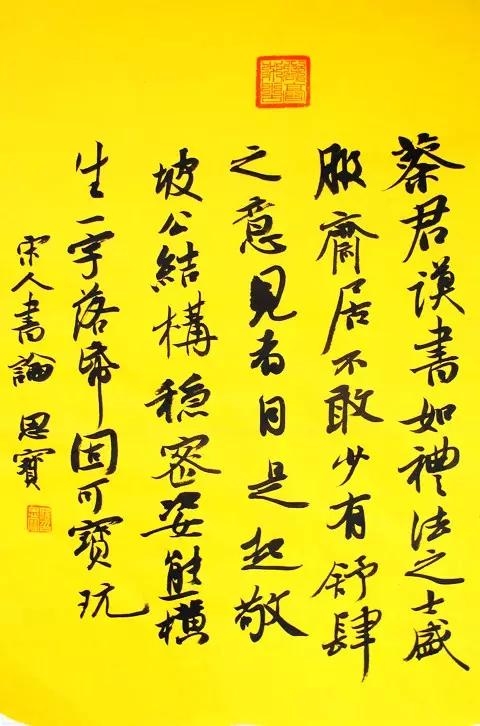 蔡君谟書如禮法之士盛
服齋居不敢少有舒肆
之意見者自是起敬
坡公結構穩密姿態橫
生一字落帋固可寶玩
宋人書論 思寶